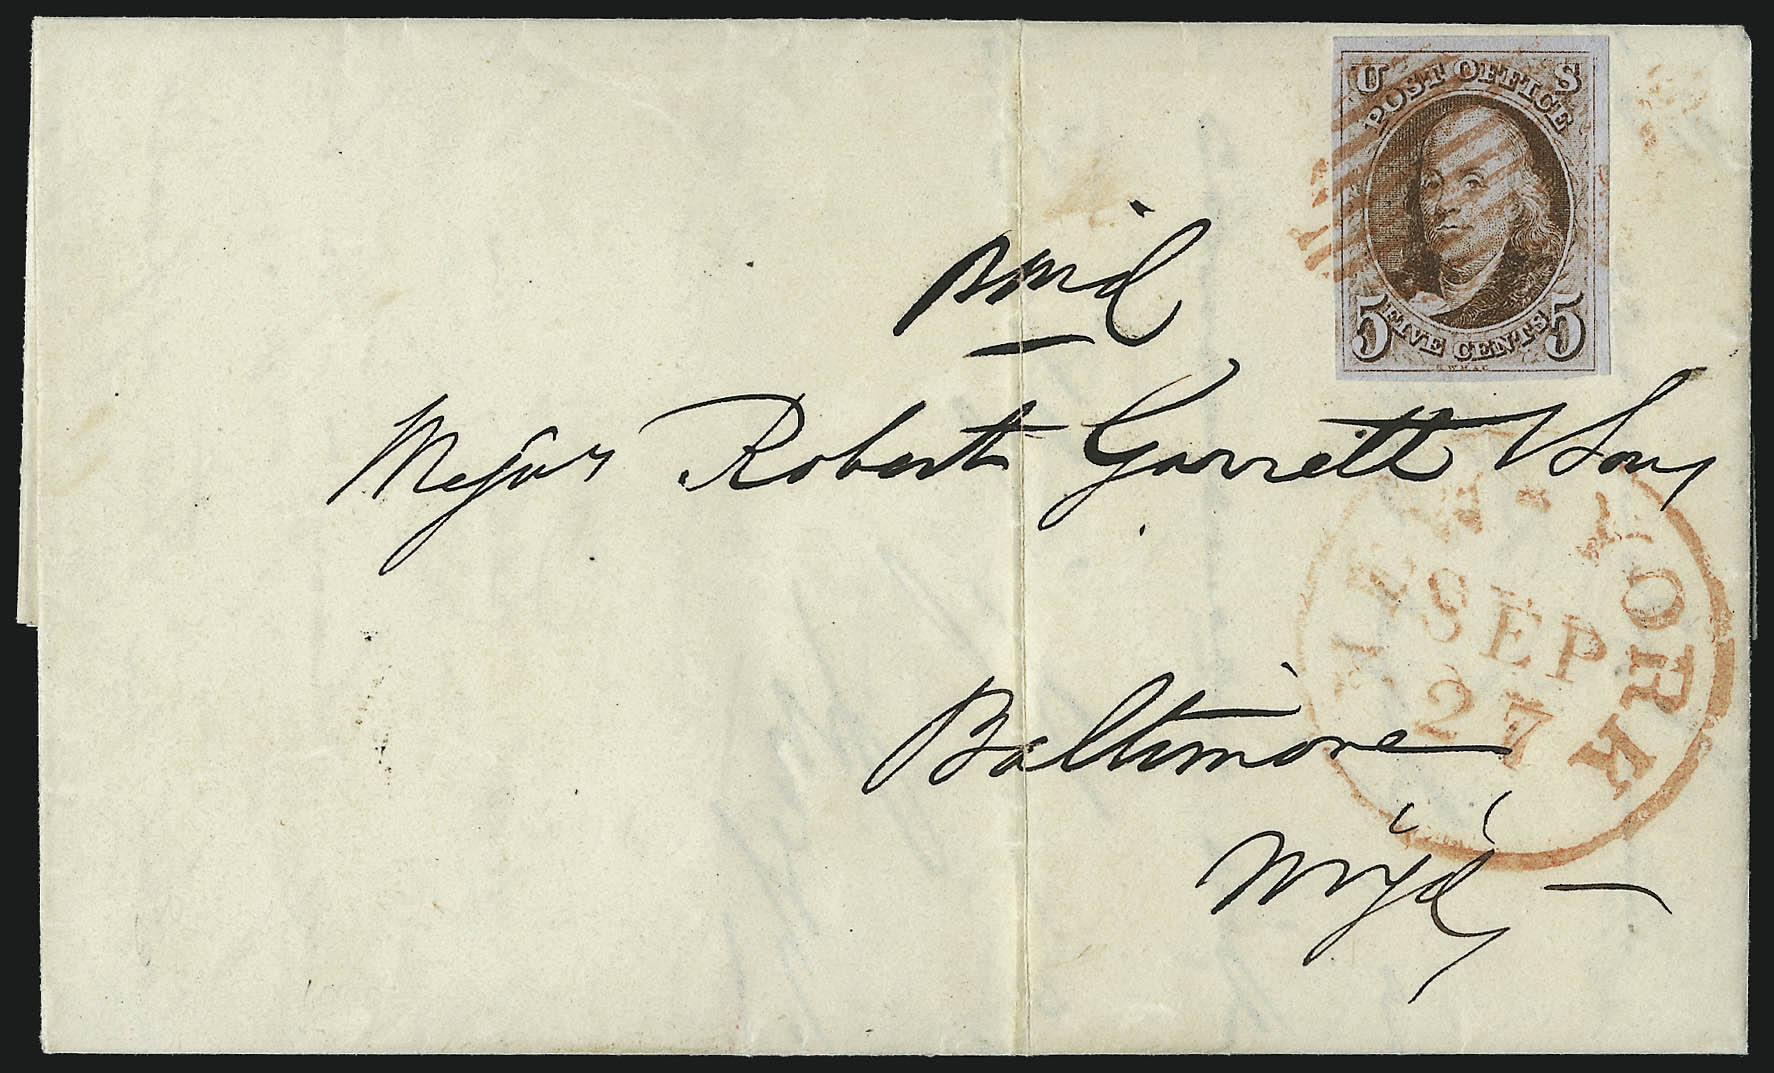 U S
POST OFFICE
5 FIVE CENTS 5
R.W.H.& E.
Paid
Messrs Robert Garrett & Sons
NEW-YORK
SEP
27
Baltimore
Md